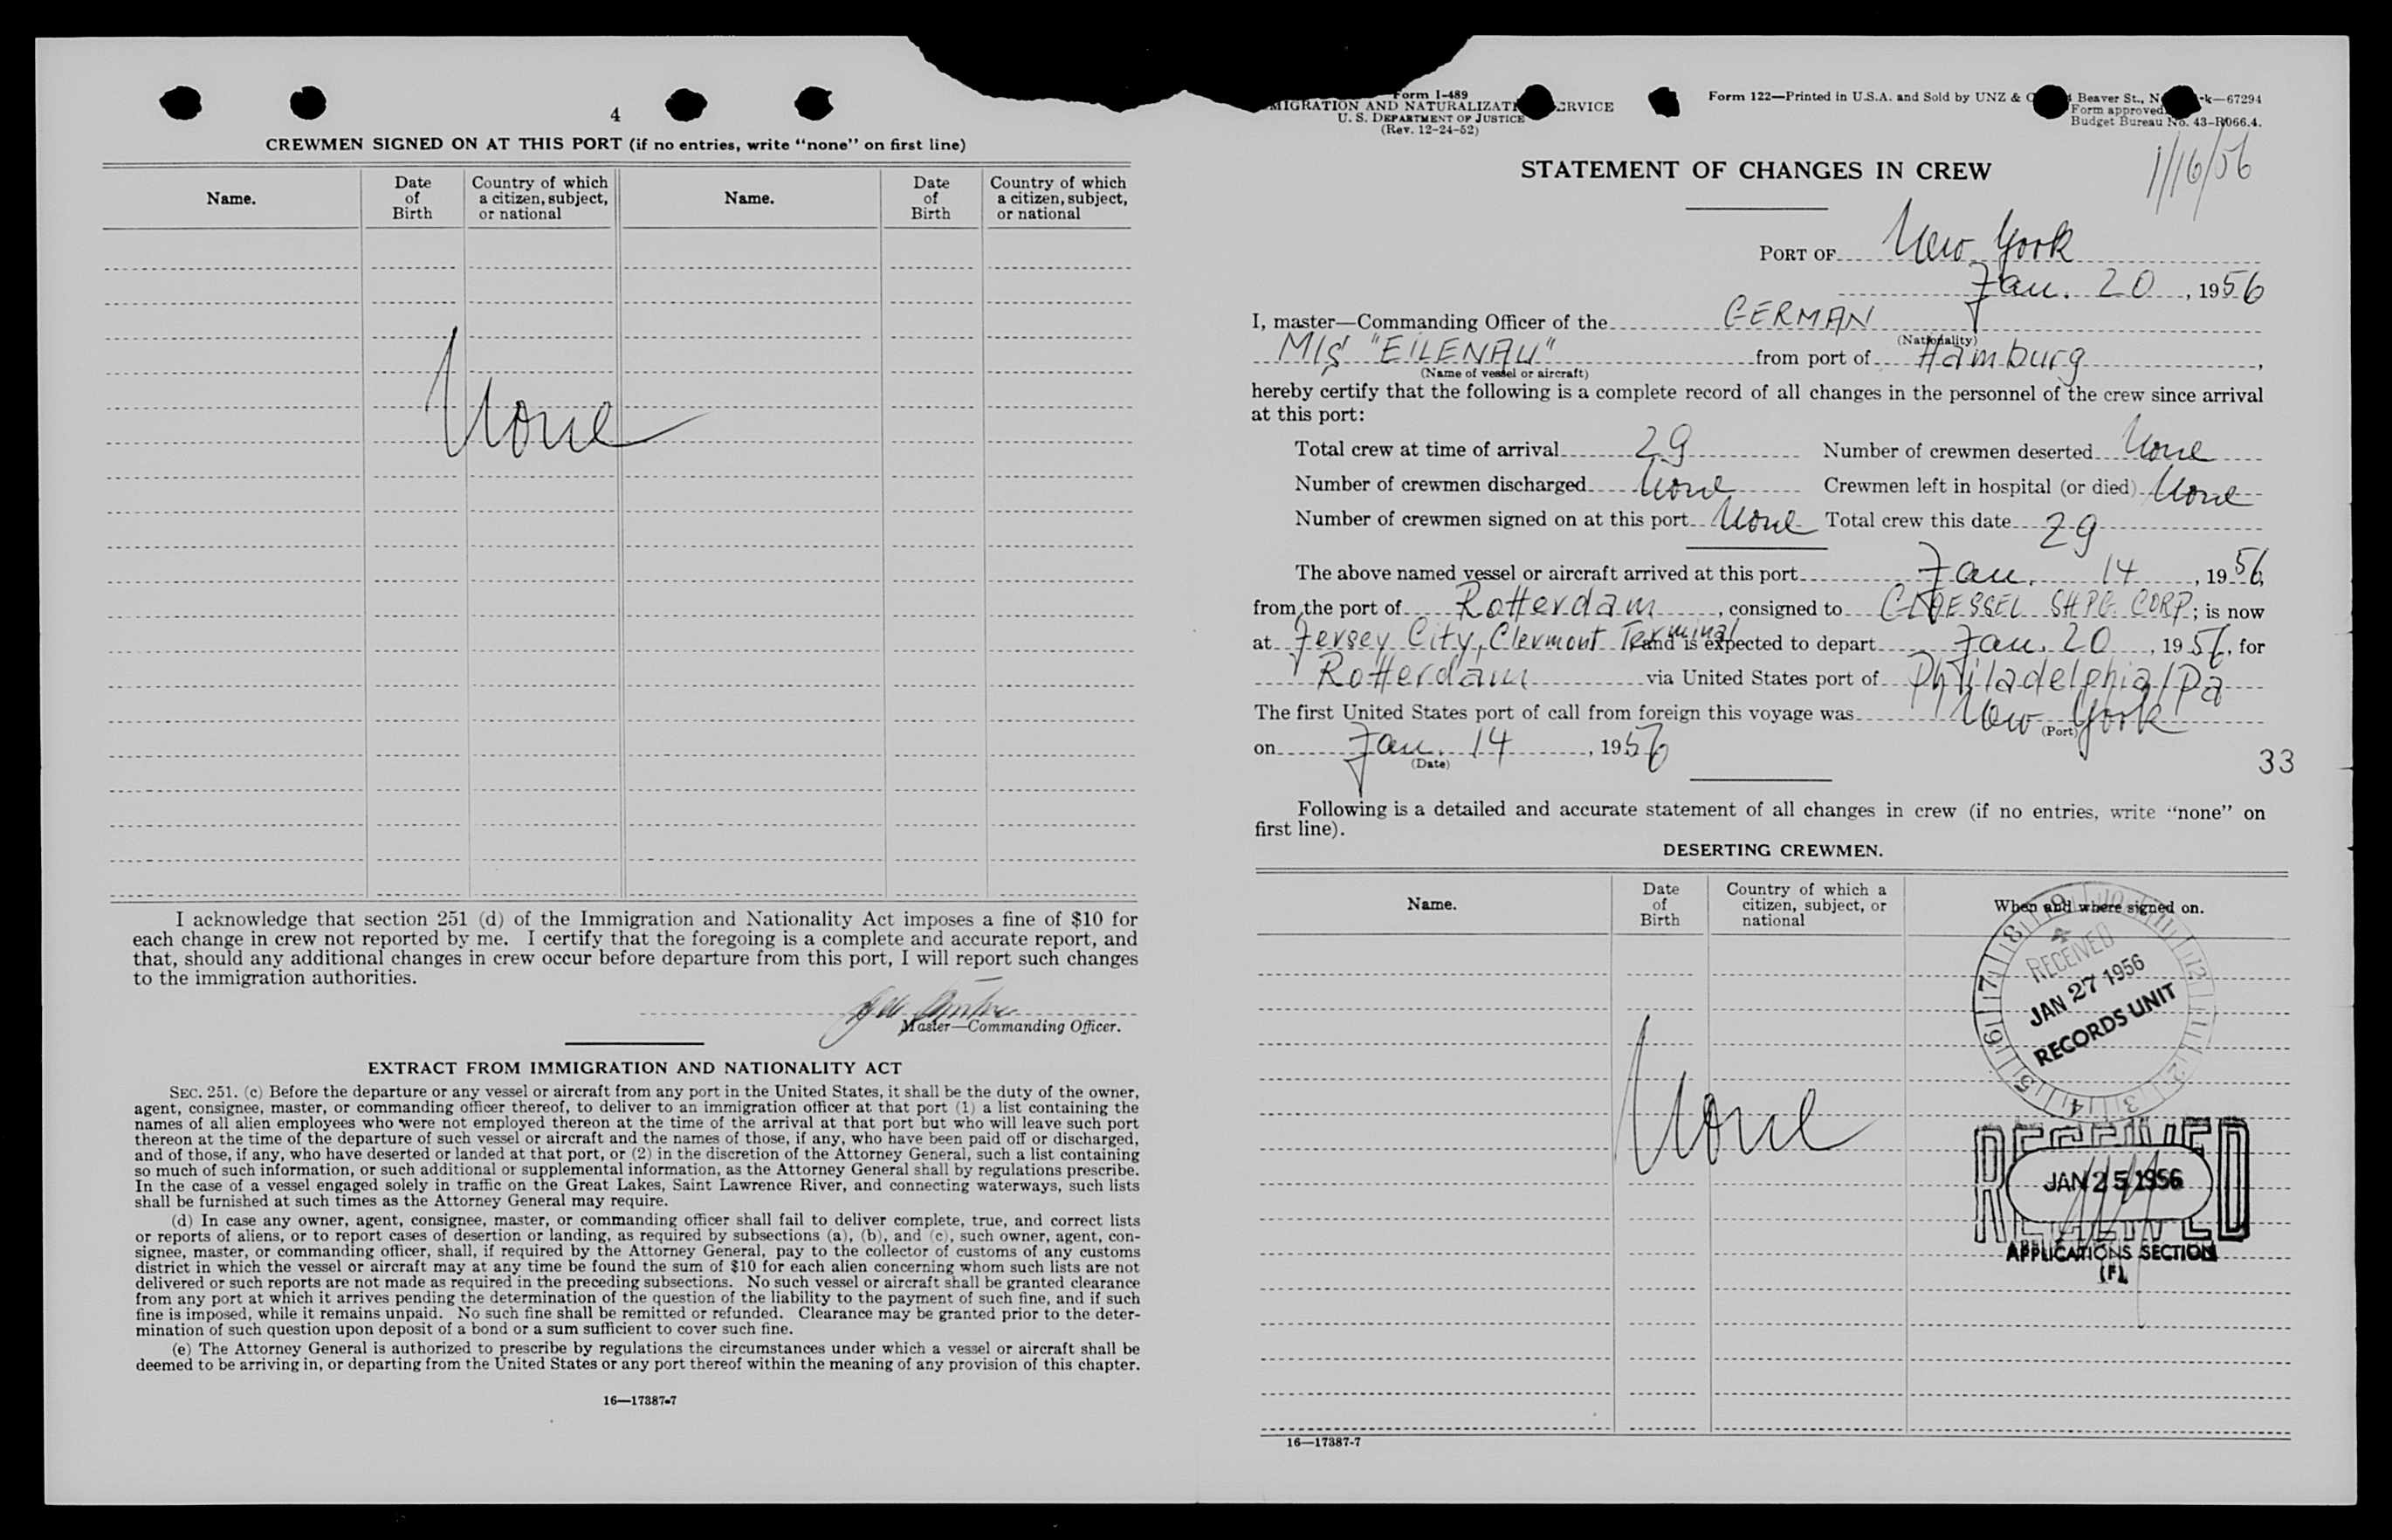 4
CREWMEN SIGNED ON AT THIS PORT (if no entries, write "none" on first line)
Name. Date of Birth Country of which a citizen, subject, or national Name. Date of Birth Country of which a citizen, subject, or national
None
I acknowledge that section 251 (d) of the Immigration and Nationality Act imposes a fine of $10 for
each change in crew not reported by me. I certify that the foregoing is a complete and accurate report, and
that, should any additional changes in crew occur before departure from this port, I will report such changes
to the immigration authorities.
Master—Commanding Officer.
EXTRACT FROM IMMIGRATION AND NATIONALITY ACT
SEC. 251. (c) Before the departure or any vessel or aircraft from any port in the United States, it shall be the duty of the owner,
agent, consignee, master, or commanding officer thereof, to deliver to an immigration officer at that port (1) a list containing the
names of all alien employees who were not employed thereon at the time of the arrival at that port but who will leave such port
thereon at the time of the departure of such vessel or aircraft and the names of those, if any, who have been paid off or discharged,
and of those, if any, who have deserted or landed at that port, or (2) in the discretion of the Attorney General, such a list containing
so much of such information, or such additional or supplemental information, as the Attorney General shall by regulations prescribe.
In the case of a vessel engaged solely in traffic on the Great Lakes, Saint Lawrence River, and connecting waterways, such lists
shall be furnished at such times as the Attorney General may require.
(d) In case any owner, agent, consignee, master, or commanding officer shall fail to deliver complete, true, and correct lists
or reports of aliens, or to report cases of desertion or landing, as required by subsections (a), (b), and (c), such owner, agent, con-
signee, master, or commanding officer, shall, if required by the Attorney General, pay to the collector of customs of any customs
district in which the vessel or aircraft may at any time be found the sum of $10 for each alien concerning whom such lists are not
delivered or such reports are not made as required in the preceding subsections. No such vessel or aircraft shall be granted clearance
from any port at which it arrives pending the determination of the question of the liability to the payment of such fine, and if such
fine is imposed, while it remains unpaid. No such fine shall be remitted or refunded. Clearance may be granted prior to the deter-
mination of such question upon deposit of a bond or a sum sufficient to cover such fine.
(e) The Attorney General is authorized to prescribe by regulations the circumstances under which a vessel or aircraft shall be
deemed to be arriving in, or departing from the United States or any port thereof within the meaning of any provision of this chapter.
16—17387-7
Form I-489
MIGRATION AND NATURALIZATI RVICE
U. S. DEPARTMENT OF JUSTICE
(Rev. 12-24-52)
Form 122—Printed in U.S.A. and Sold by UNZ & C Beaver St., N k—67294
Form approved.
Budget Bureau No. 43-R066.4.
1/16/56
STATEMENT OF CHANGES IN CREW
PORT OF New York
Jan. 20, 1956
I, master—Commanding Officer of the GERMAN
(Nationality)
M/S "EILENAU" from port of Hamburg,
(Name of vessel or aircraft)
hereby certify that the following is a complete record of all changes in the personnel of the crew since arrival
at this port:
Total crew at time of arrival 29 Number of crewmen deserted None
Number of crewmen discharged None Crewmen left in hospital (or died) None
Number of crewmen signed on at this port None Total crew this date 29
The above named vessel or aircraft arrived at this port Jan. 14, 1956,
from the port of Rotterdam, consigned to SHPG. CORP.; is now
at Jersey City, Clermont Terminal and is expected to depart Jan. 20, 1956, for
Rotterdam via United States port of Philadelphia/Pa
The first United States port of call from foreign this voyage was New York
(Port)
on Jan. 14, 1956
(Date)
33
Following is a detailed and accurate statement of all changes in crew (if no entries, write "none" on
first line).
DESERTING CREWMEN.
Name. Date of Birth Country of which a citizen, subject, or national When and where signed on.
RECEIVED
JAN 27 1956
RECORDS UNIT
None
RECEIVED
JAN 25 1956
APPLICATIONS SECTION
(F)
16—17387-7